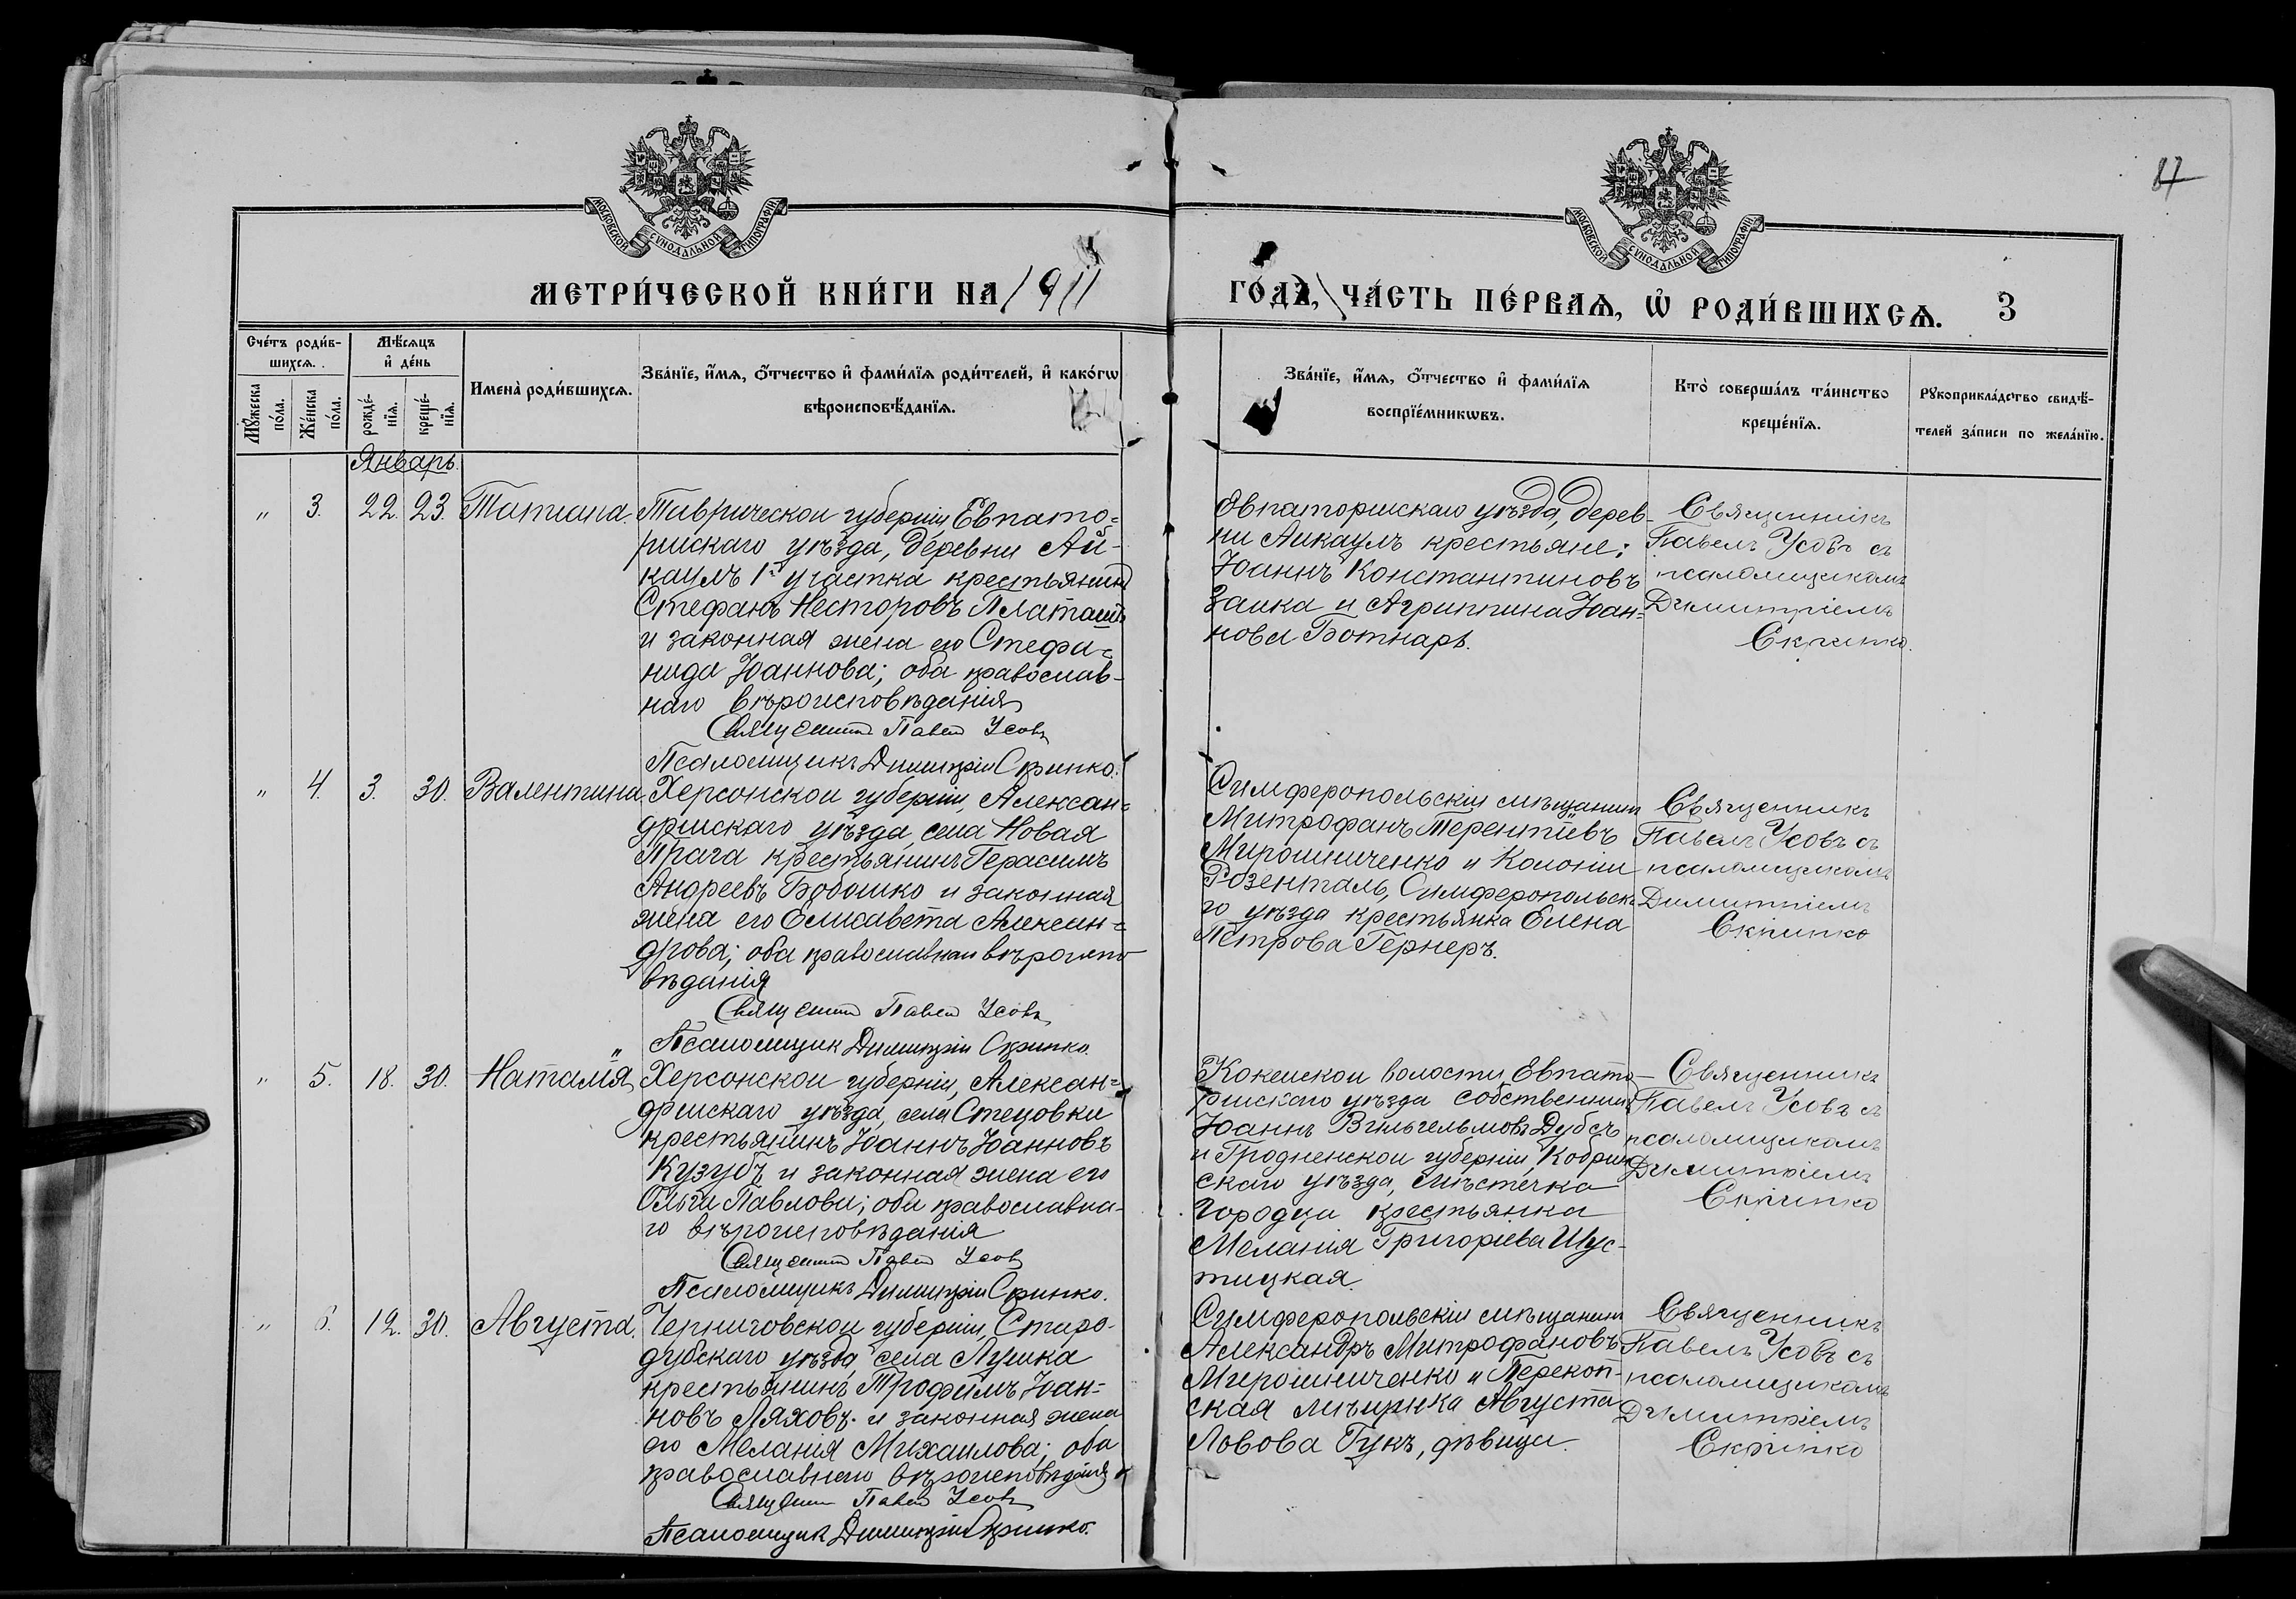 87
МОСКОВСКОЙ СУНОДАЛЬНОЙ ТИПОГРАФІИ
МОСКОВСКОЙ СУНОДАЛЬНОЙ ТИПОГРАФІИ
МЕТРИ́ЧЕСКОЙ КНИ́ГИ НА 1911
ГО́ДЪ, ЧА́СТЬ ПЕ́РВАѦ, Ѡ҆ РОДИ́ВШИХСѦ. 3
Сче́тъ роди́в-
шихсѧ.
Мꙋ́жеска по́ла.
Же́нска по́ла.
Мѣ́сѧцъ
и҆ де́нь
рожде́-
нїѧ.
креще́-
нїѧ.
Имена̀ роди́вшихсѧ.
Зва́нїе, и҆́мѧ, ѻ҆́тчество и҆ фами́лїѧ роди́телей, и҆ како́гѡ
вѣроисповѣ́данїѧ.
Зва́нїе, и҆́мѧ, ѻ҆́тчество и҆ фами́лїѧ
воспрїе́мникѡвъ.
Кто̀ соверша́лъ та́инство
креще́нїѧ.
Рꙋкоприкла́дство свидѣ́-
телей за́писи по жела́нїю.
Январь.
" 3. 22. 23. Татиана.
Таврической губерніи Евпато=
рійскаго уѣзда, деревни Ай-
каулъ 1го участка крестьянинъ
Стефанъ Несторовъ
и законная жена его Стефа=
нида Іоаннова; оба православ-
наго вѣроисповѣданія
Священникъ Павелъ Усовъ
Псаломщикъ Димитрій Скрипко.
Евпаторійскаго уѣзда, дерев-
ни Айкаулъ крестьяне:
Іоаннъ Константиновъ
Заика и Агриппина Іоан=
нова Ботнарь.
Священникъ
Павелъ Усовъ съ
псаломщикомъ
Димитріемъ
Скрипко.
" 4. 3. 30. Валентина.
Херсонской губерніи, Алексан=
дрійскаго уѣзда, села Новая
Прага крестьянинъ Герасимъ
Андреевъ Бобошко и законная
жена его Елисавета Алексан=
дрова; оба православнаго вѣроиспо
вѣданія
Священникъ Павелъ Усовъ
Псаломщик Димитрій Скрипко.
Симферопольскій мѣщанинъ
Митрофанъ Терентіевъ
Мирошниченко и Колоніи
Розенталь, Симферопольска
го уѣзда крестьянка Елена
Петрова Гернеръ.
Священникъ
Павелъ Усовъ съ
псаломщикомъ
Димитріемъ
Скрипко
" 5. 18. 30. Наталія
Херсонской губерніи, Алексан=
дрійскаго уѣзда, села Стецовки
крестьянинъ Іоаннъ Іоанновъ
Кузубъ и законная жена его
Ольга Павлова; оба православна-
го вѣроисповѣданія
Священникъ Павелъ Усовъ
Псаломщикъ Димитрій Скрипко.
Кокейской волости Евпато-
рійскаго уѣзда собственникъ
Іоаннъ Вильгельмовъ Дубсъ
и Гродненской губерніи, Кобрин
скаго уѣзда, мѣстечка
Городца крестьянка
Меланія Григоріева Шус-
тицкая.
Священникъ
Павелъ Усовъ съ
псаломщикомъ
Димитріемъ
Скрипко
" 6. 12. 30. Августа.
Черниговской губерніи, Старо-
дубскаго уѣзда, села
крестьянинъ Трофимъ Іоан=
новъ Ляховъ и законная жена
его Меланія Михаилова; оба
православнаго вѣроисповѣданія
Священникъ Павелъ Усовъ
Псаломщик Димитрій Скрипко.
Симферопольскій мѣщанинъ
Александръ Митрофановъ
Мирошниченко и Перекоп-
ская Августа
Ловова Гукъ, дѣвица.
Священникъ
Павелъ Усовъ съ
псаломщикомъ
Димитріемъ
Скрипко